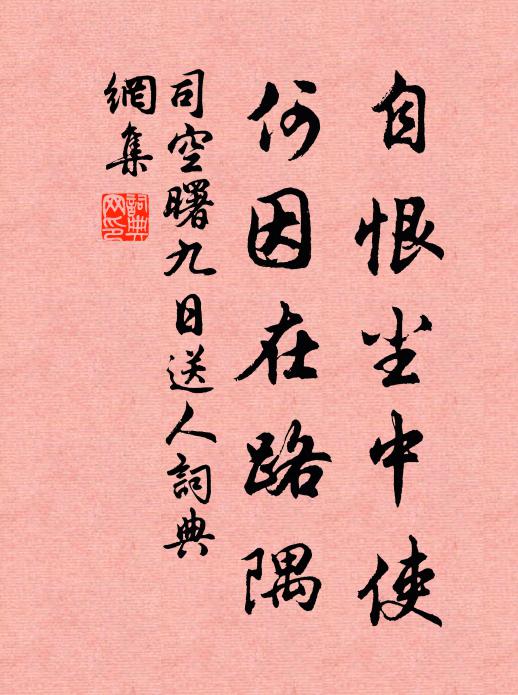 自恨尘中使
何因在路隅
司空曙九日送人詞典
網集
詞典網印